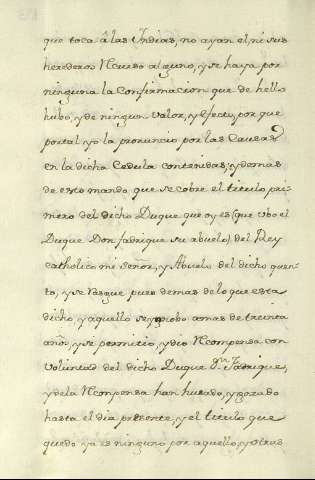 que toca â las Indias, no ayan el, ni sus
herederos Recurso alguno, y se haya por
ninguna la Confirmacion que de hello
hubo, y de ningun valor, y efectu, por que
por tal yo la pronuncio por las Causas
en la dicha Cedula contenidas; y demas
de esto mando que se cobre el titulo pri-
mero del dicho Duque que oy es (que vbo el
Duque Don fadrique su abuelo) del Rey
catholico mi Señor, y Abuelo del dicho quen-
to, y se Rasgue pues demas de lo que esta
dicho, y aquello se probo amas de treinta
años, y se permitio, y dio Recompensa con
voluntad del dicho Duque Dn. Fadrique,
y de la Reconpensa han husado, y gozado
hasta el dia presente, y el titulo que
quedo ya es ninguno por aquello, y otras